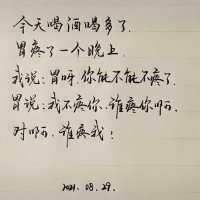 今天喝酒喝多了.
胃疼了一个晚上.
我说:胃呀,你能不能不疼了.
胃说:我不疼你,谁疼你啊,
对啊,谁疼我!
2021.08.29.